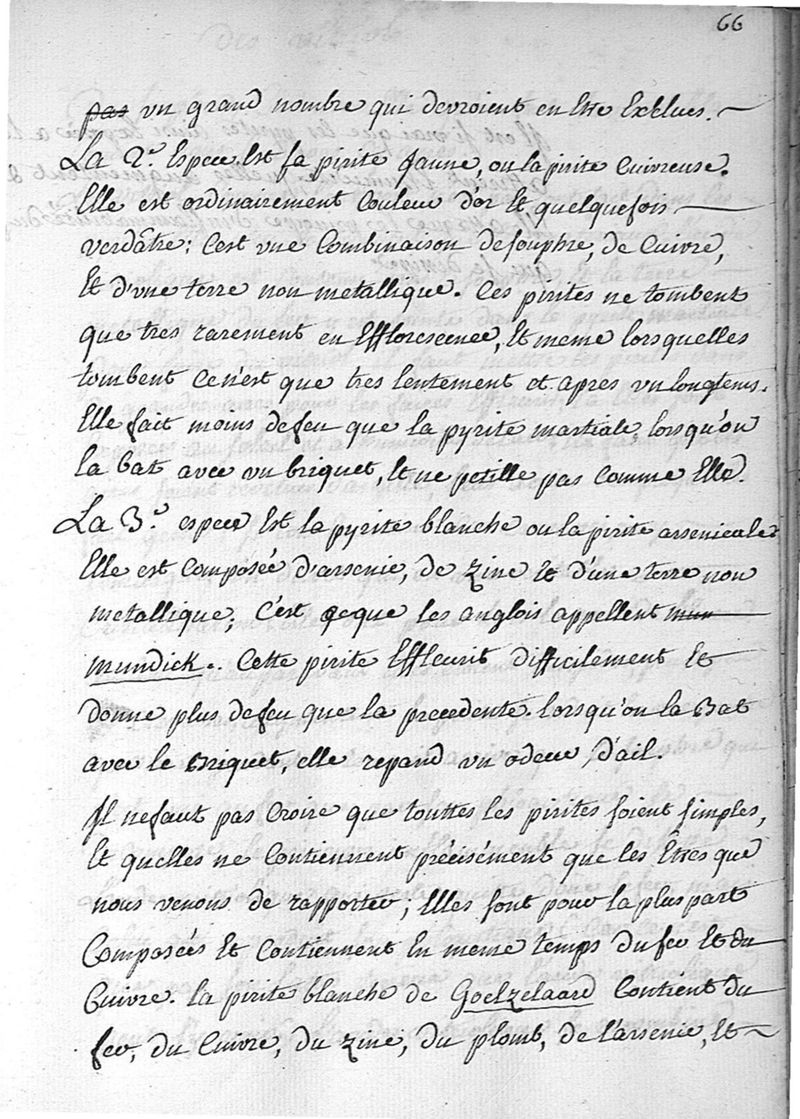 66
pas un grand nombre qui devroient en Etre Exclues. —
La 2.e Espece Est la pirite Jaune, ou la pirite Cuivreuse.
Elle est ordinairement Couleur d'or Et quelquefois —
verdâtre; C'est une Combinaison de souphre, de Cuivre,
Et d'une terre non metallique. Ces pirites ne tombent
que tres rarement en Efflorescence, Et meme lorsquelles
tombent Ce n'est que tres lentement et apres un longtems.
Elle fait moins de feu que la pyrite martiale, lorsqu'on
la bat avec un briquet, Et ne petille pas Comme Elle.
La 3.e espece Est la pyrite blanche ou la pirite arsenicale
Elle est Composée d'arsenic, de Zinc Et d'une terre non
metallique; C'est ce que les anglois appellent mun
mundick. Cette pirite Effleurit difficilement Et
donne plus de feu que la precedente. lorsqu'on la Bat
avec le Briquet, elle repand un odeur d'ail.
Il ne faut pas Croire que touttes les pirites soient simples,
Et quelles ne Contiennent précisément que les Êtres que
nous venons de rapporter; Elles sont pour la pluspart
Composées Et Contiennent En meme temps du fer Et du
Cuivre. la pirite blanche de Goelzelaard Contient du
fer, du Cuivre, du zinc, du plomb, de l'arsenic, Et —